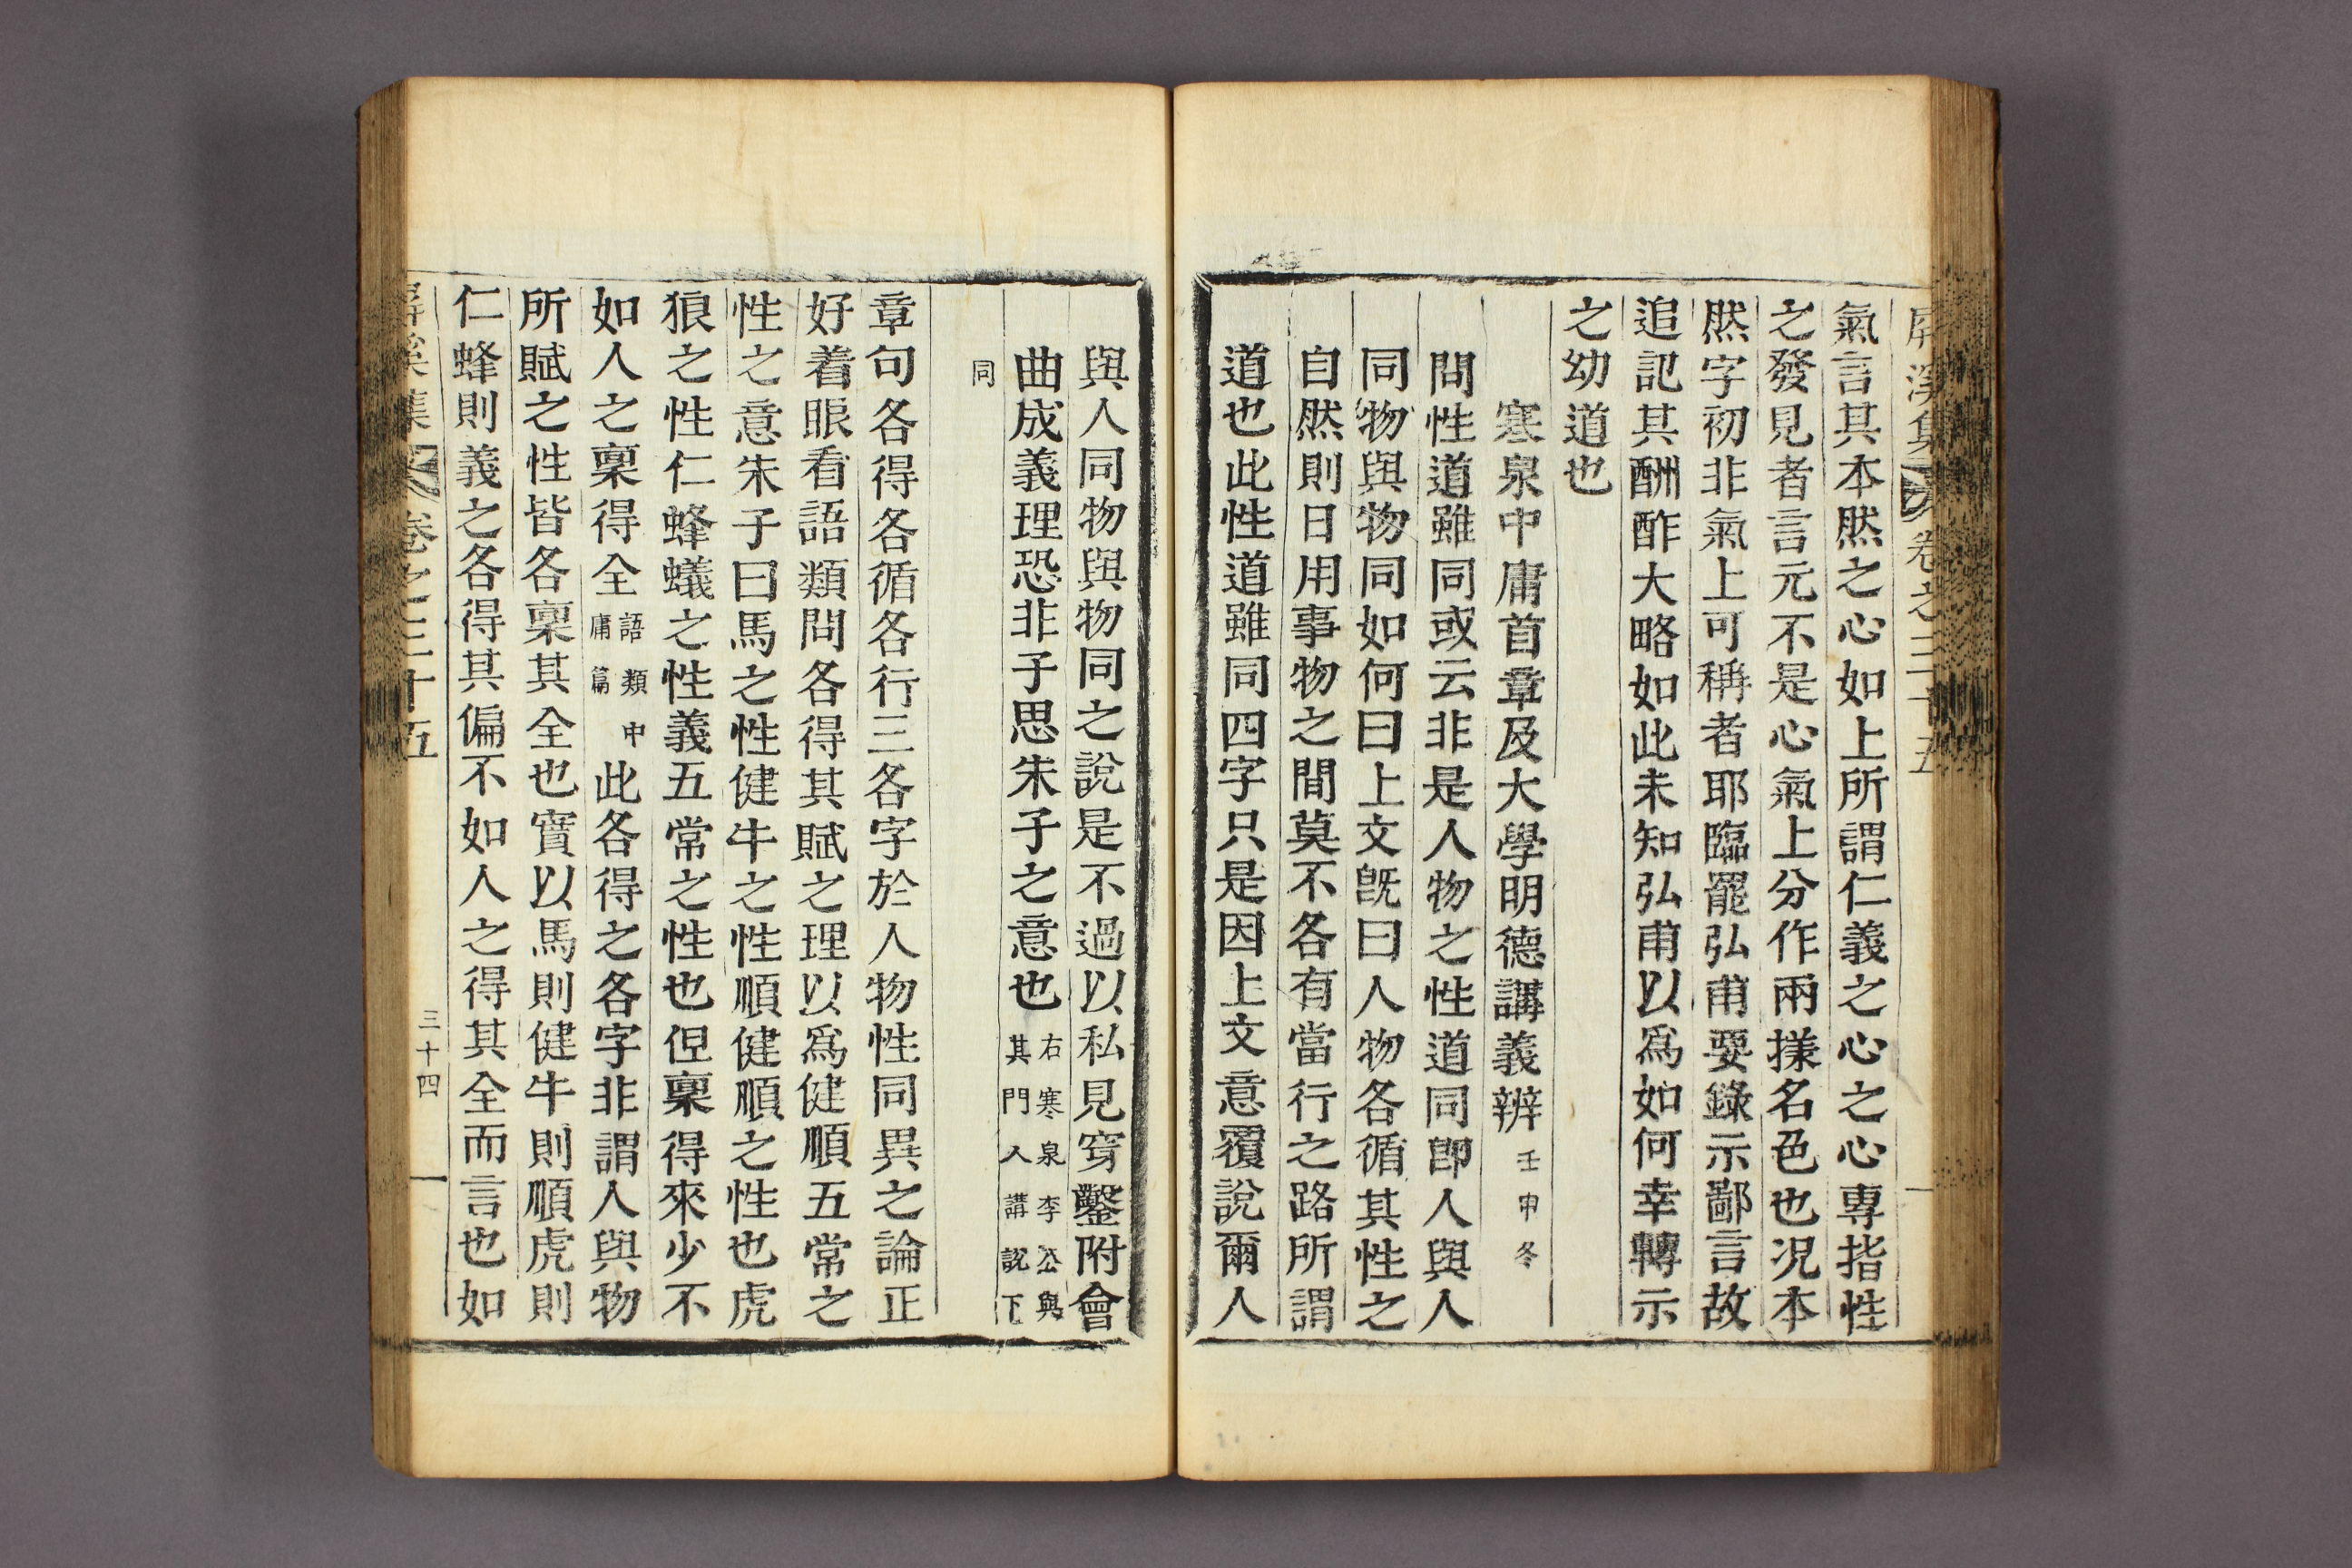 屛溪集 卷之三十五
氣言其本然之心如上所謂仁義之心之心專指性
之發見者言元不是心氣上分作兩㨾名色也况本
然字初非氣上可稱者耶臨罷弘甫要錄示鄙言故
追記其酬酢大略如此未知弘甫以爲如何幸轉示
之幼道也
寒泉中庸首章及大學明德講義辨 壬申冬
問性道雖同或云非是人物之性道同卽人與人
同物與物同如何曰上文旣曰人物各循其性之
自然則日用事物之間莫不各有當行之路所謂
道也此性道雖同四字只是因上文意覆說爾人
與人同物與物同之說是不過以私見穿鑿附會
曲成義理恐非子思朱子之意也 右寒泉李公與其門人講說下
同
章句各得各循各行三各字於人物性同異之論正
好着眼看語類問各得其賦之理以爲健順五常之
性之意朱子曰馬之性健牛之性順健順之性也虎
狼之性仁蜂蟻之性義五常之性也但稟得來少不
如人之稟得全 語類中庸篇 此各得之各字非謂人與物
所賦之性皆各稟其全也實以馬則健牛則順虎則
仁蜂則義之各得其偏不如人之得其全而言也如
屛溪集 卷之三十五 三十四